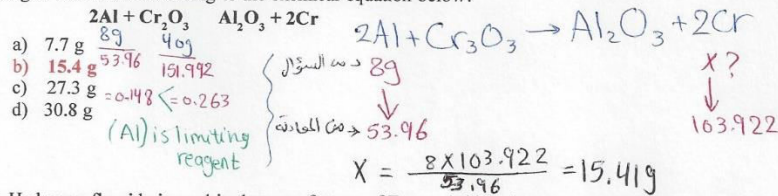 2Al + Cr₂O₃    Al₂O₃ + 2Cr
a) 7.7 g
b) 15.4 g
c) 27.3 g
d) 30.8 g
8g    40g
53.96    151.992
=0.148 <=0.263
(Al) is limiting
reagent
2Al + Cr₃O₃ → Al₂O₃ + 2Cr
من السؤال → 8g    X ?
من المعادلة → 53.96    103.922
X = 8X103.922 / 53.96 = 15.41g